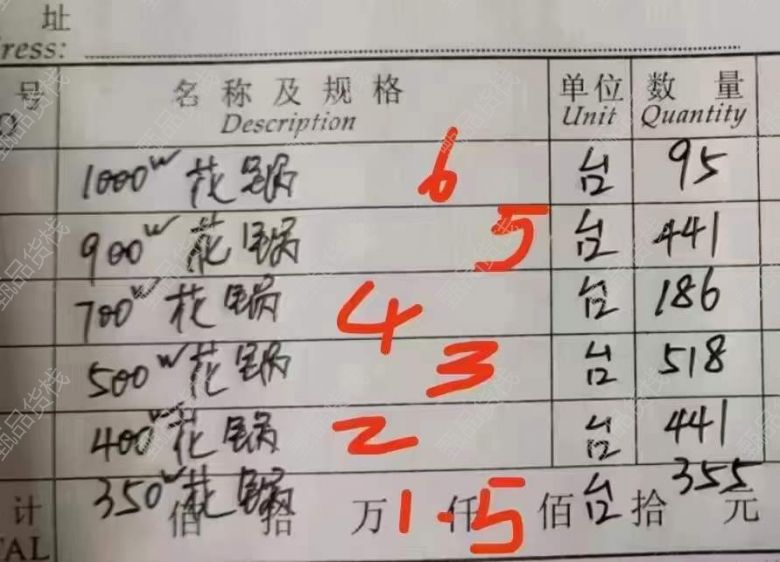 址
ress:
号 名称及规格 单位 数量
Description Unit Quantity
1000W 花锅 6 台 95
900W 花锅 5 台 441
700W 花锅 4 台 186
500W 花锅 3 台 518
400W 花锅 2 台 441
350W 花锅 台 355
计 佰 拾 万 1.5 仟 佰 拾 元
TAL
甄品货栈